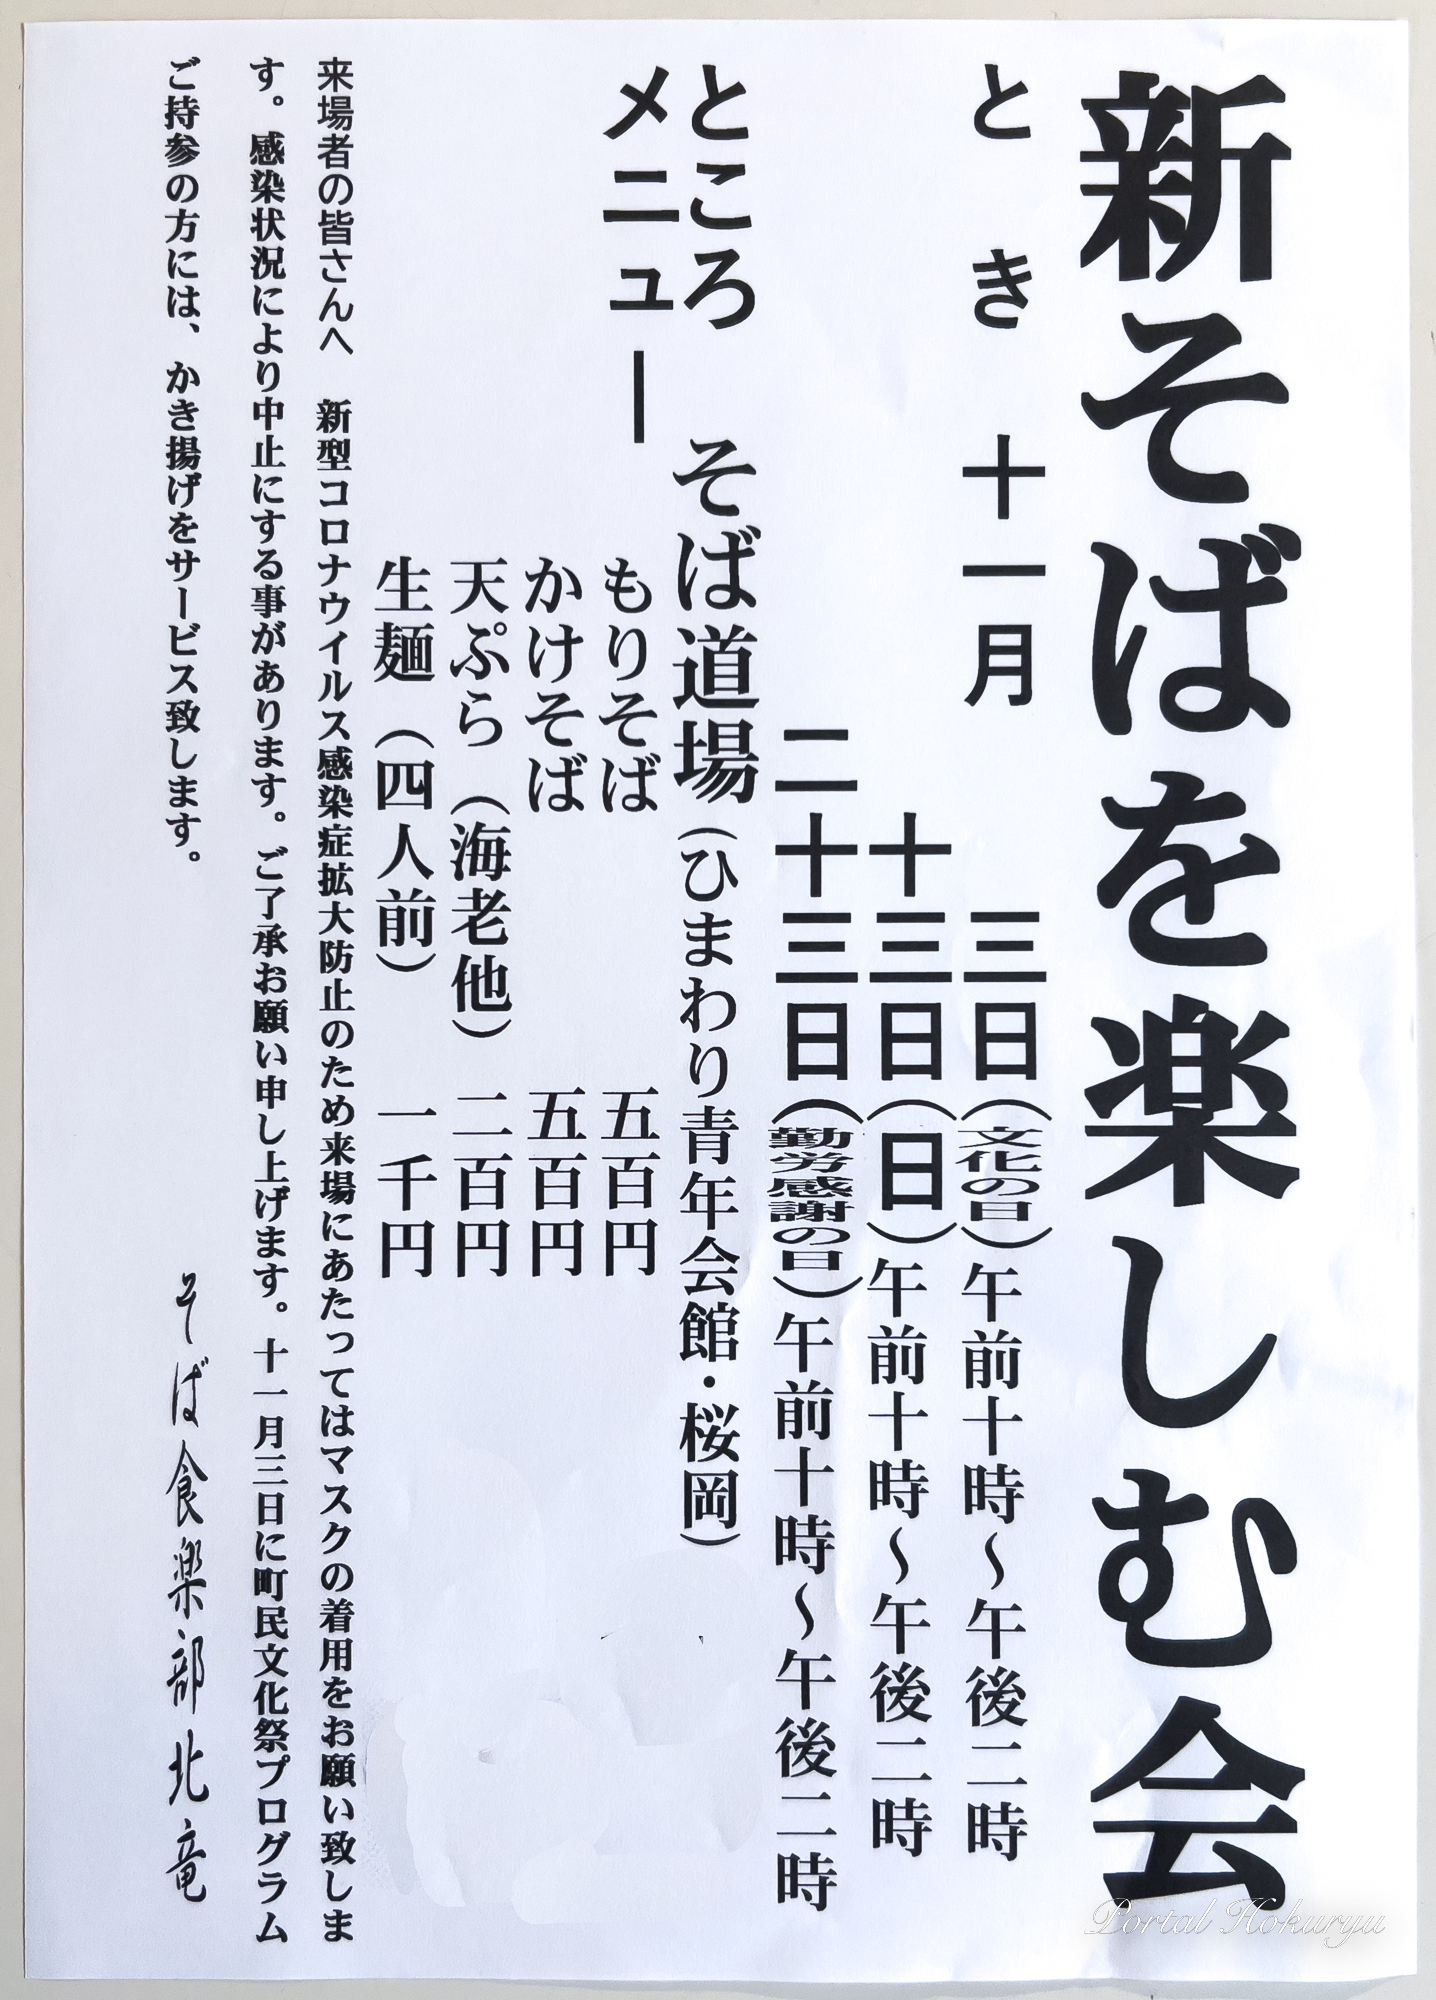 新そばを楽しむ会
とき 十一月 三日(文化の日)午前十時~午後二時
十三日(日)午前十時~午後二時
二十三日(勤労感謝の日)午前十時~午後二時
ところ そば道場(ひまわり青年会館・桜岡)
メニュー もりそば 五百円
かけそば 五百円
天ぷら(海老他) 二百円
生麺(四人前) 一千円
来場者の皆さんへ 新型コロナウイルス感染症拡大防止のため来場にあたってはマスクの着用をお願い致しま
す。感染状況により中止にする事があります。ご了承お願い申し上げます。十一月三日に町民文化祭プログラム
ご持参の方には、かき揚げをサービス致します。
そば食楽部北竜
Portal Hokuryu